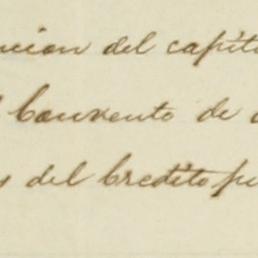 ucion del capit
Convento de
del Credito pu